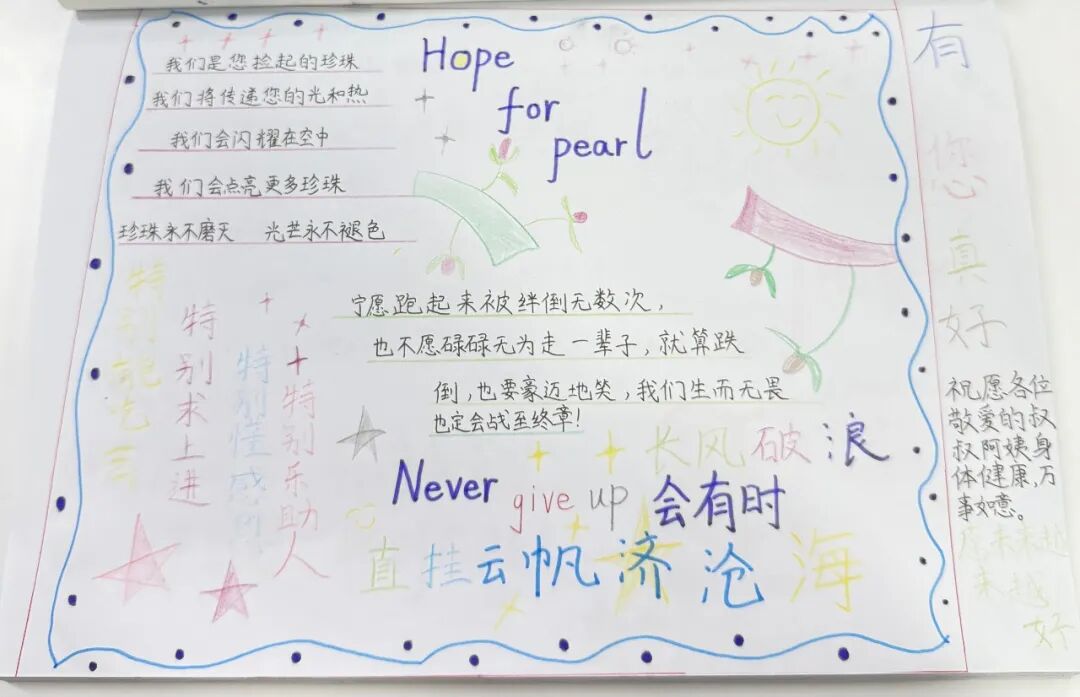 我们是您捡起的珍珠
我们将传递您的光和热
我们会闪耀在空中
我们会点亮更多珍珠
珍珠永不磨灭 光芒永不褪色
Hope
for
pearl
宁愿跑起来被绊倒无数次，
也不愿碌碌无为走一辈子，就算跌
倒，也要豪迈地笑，我们生而无畏
也定会战至终章！
特别能吃
特别求上进
特别懂感恩
特别乐助人
长风破浪
Never give up 会有时
直挂云帆济沧海
有您真好
祝愿各位
敬爱的叔
叔阿姨身
体健康，万
事如意。
未来越
来越
好